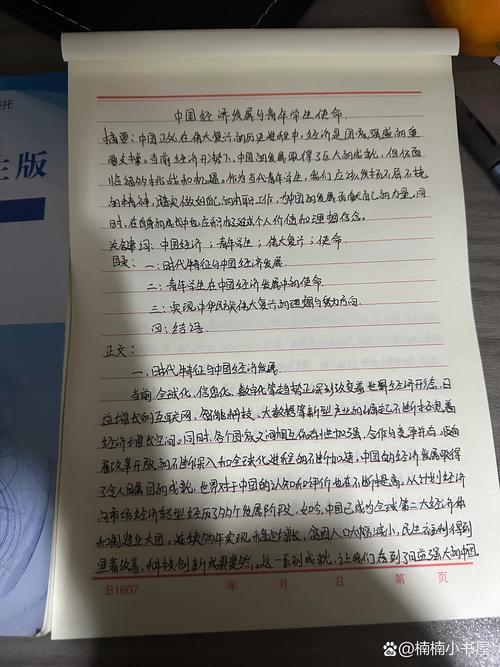 中国经济发展与青年学生使命
摘要：中国正处在伟大复兴的历史进程中，经济是国家强盛的重
要支撑。当前经济形势下，中国的发展取得了巨大的成就，但仍面
临新的挑战和机遇。作为当代青年学生，我们应该发扬不屈不挠
的精神，踏实做好自己的本职工作，为中国的发展贡献自己的力量。同
时，在自身的成长中也应积极追求个人价值和理想信念。
关键词：中国经济；青年学生；伟大复兴；使命
目录：一：时代特征与中国经济发展
二：青年学生在中国经济发展中的使命
三：实现中华民族伟大复兴的理想与努力方向
四：结语
正文：
一、时代特征与中国经济发展
当前，全球化、信息化、数字化等趋势正深刻改变着世界经济形态，日
益增长的互联网、智能科技、大数据等新型产业的崛起不断拓宽着
经济增长空间。同时，各个国家之间相互依存性加强，合作与竞争并存。随着
改革开放的不断深入和全球化进程的不断加速，中国的经济发展取得
了令人瞩目的成就，世界对于中国的认知和评价也在不断提高。从计划经济
向市场经济转型经历了多个发展阶段，如今，中国已成为全球第二大经济体
和制造业大国。连续多年实现稳定增长，贫困人口大幅减小，民生福利得到
显著改善，科技创新成果斐然。这一系列成就，让我们看到了日益强大的中国
B1607 年 月 日 第 页
生版
托
@楠楠小书屋